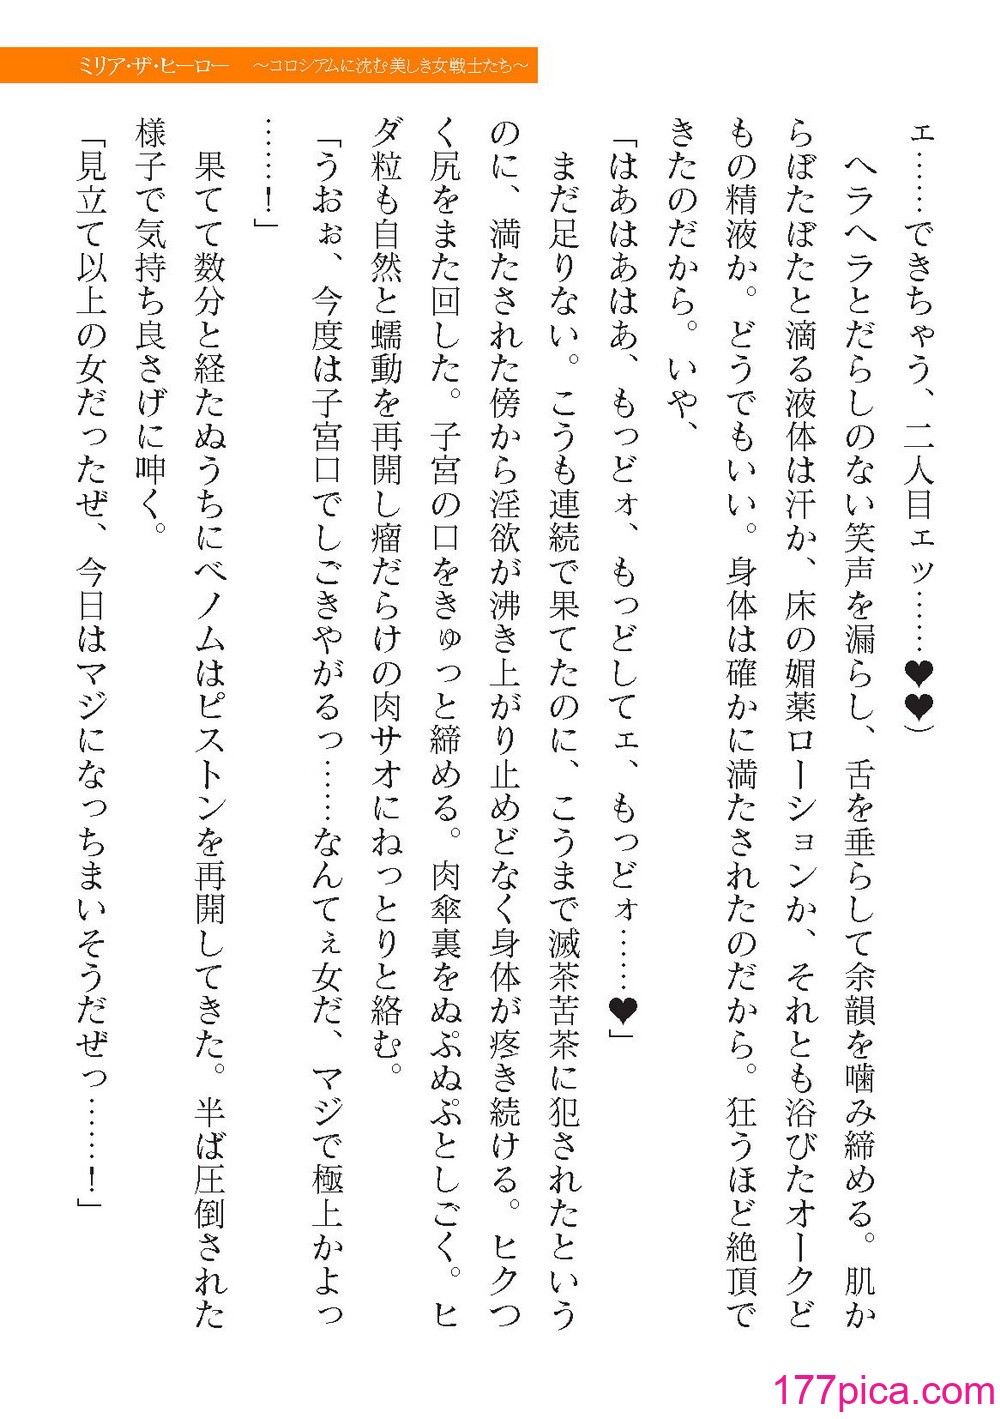 ミリア・ザ・ヒーロー　～コロシアムに沈む美しき女戦士たち～
ェ……できちゃう、二人目ェッ……♥♥）
　ヘラヘラとだらしのない笑声を漏らし、舌を垂らして余韻を噛み締める。肌か
らぼたぼたと滴る液体は汗か、床の媚薬ローションか、それとも浴びたオークど
もの精液か。どうでもいい。身体は確かに満たされたのだから。狂うほど絶頂で
きたのだから。いや、
「はあはあはあ、もっどォ、もっどしてェ、もっどォ……♥」
　まだ足りない。こうも連続で果てたのに、こうまで滅茶苦茶に犯されたという
のに、満たされた傍から淫欲が沸き上がり止めどなく身体が疼き続ける。ヒクつ
く尻をまた回した。子宮の口をきゅっと締める。肉傘裏をぬぷぬぷとしごく。ヒ
ダ粒も自然と蠕動を再開し瘤だらけの肉サオにねっとりと絡む。
「うおぉ、今度は子宮口でしごきやがるっ……なんてぇ女だ、マジで極上かよっ
……！」
　果てて数分と経たぬうちにベノムはピストンを再開してきた。半ば圧倒された
様子で気持ち良さげに呻く。
「見立て以上の女だったぜ、今日はマジになっちまいそうだぜっ……！」
177pica.com